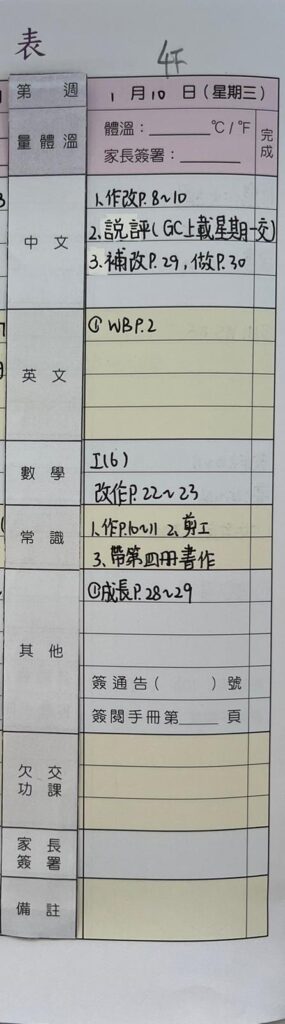 表
4F
第 週
1 月 10 日(星期三)
量體溫
體溫:______℃/℉
家長簽署:______
完成
中文
1.作改P.8~10
2.說評(GC上載星期一交)
3.補改P.29,做P.30
英文
① WB P.2
數學
I(6)
改作P.22~23
常識
1.作P.10~11 2.剪工
3.帶第四冊書作
其他
①成長P.28~29
簽通告( )號
簽閱手冊第____頁
欠交功課
家長簽署
備註